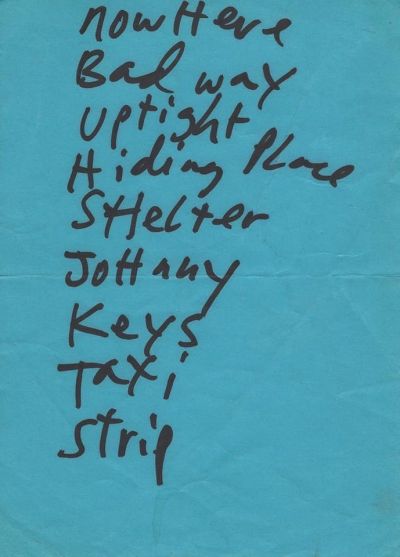 nowHere
Bad way
uptight
Hiding Place
SHelter
JoHnny
Keys
Taxi
Strip